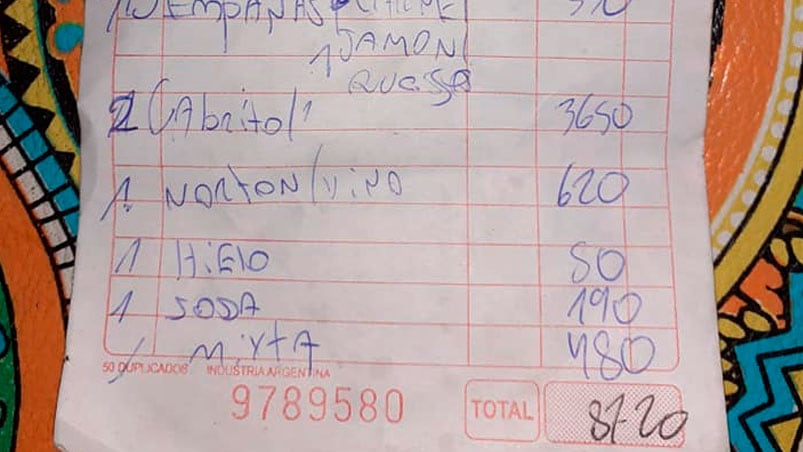 EMPANAS
1 JAMON
QUESSO
2 CAbrito/1 3650
1 NORTON/viNO 620
1 HiElO 50
1 SODA 190
1 MixTA 480
50 DUPLICADOS INDUSTRIA ARGENTINA
9789580 TOTAL 8720